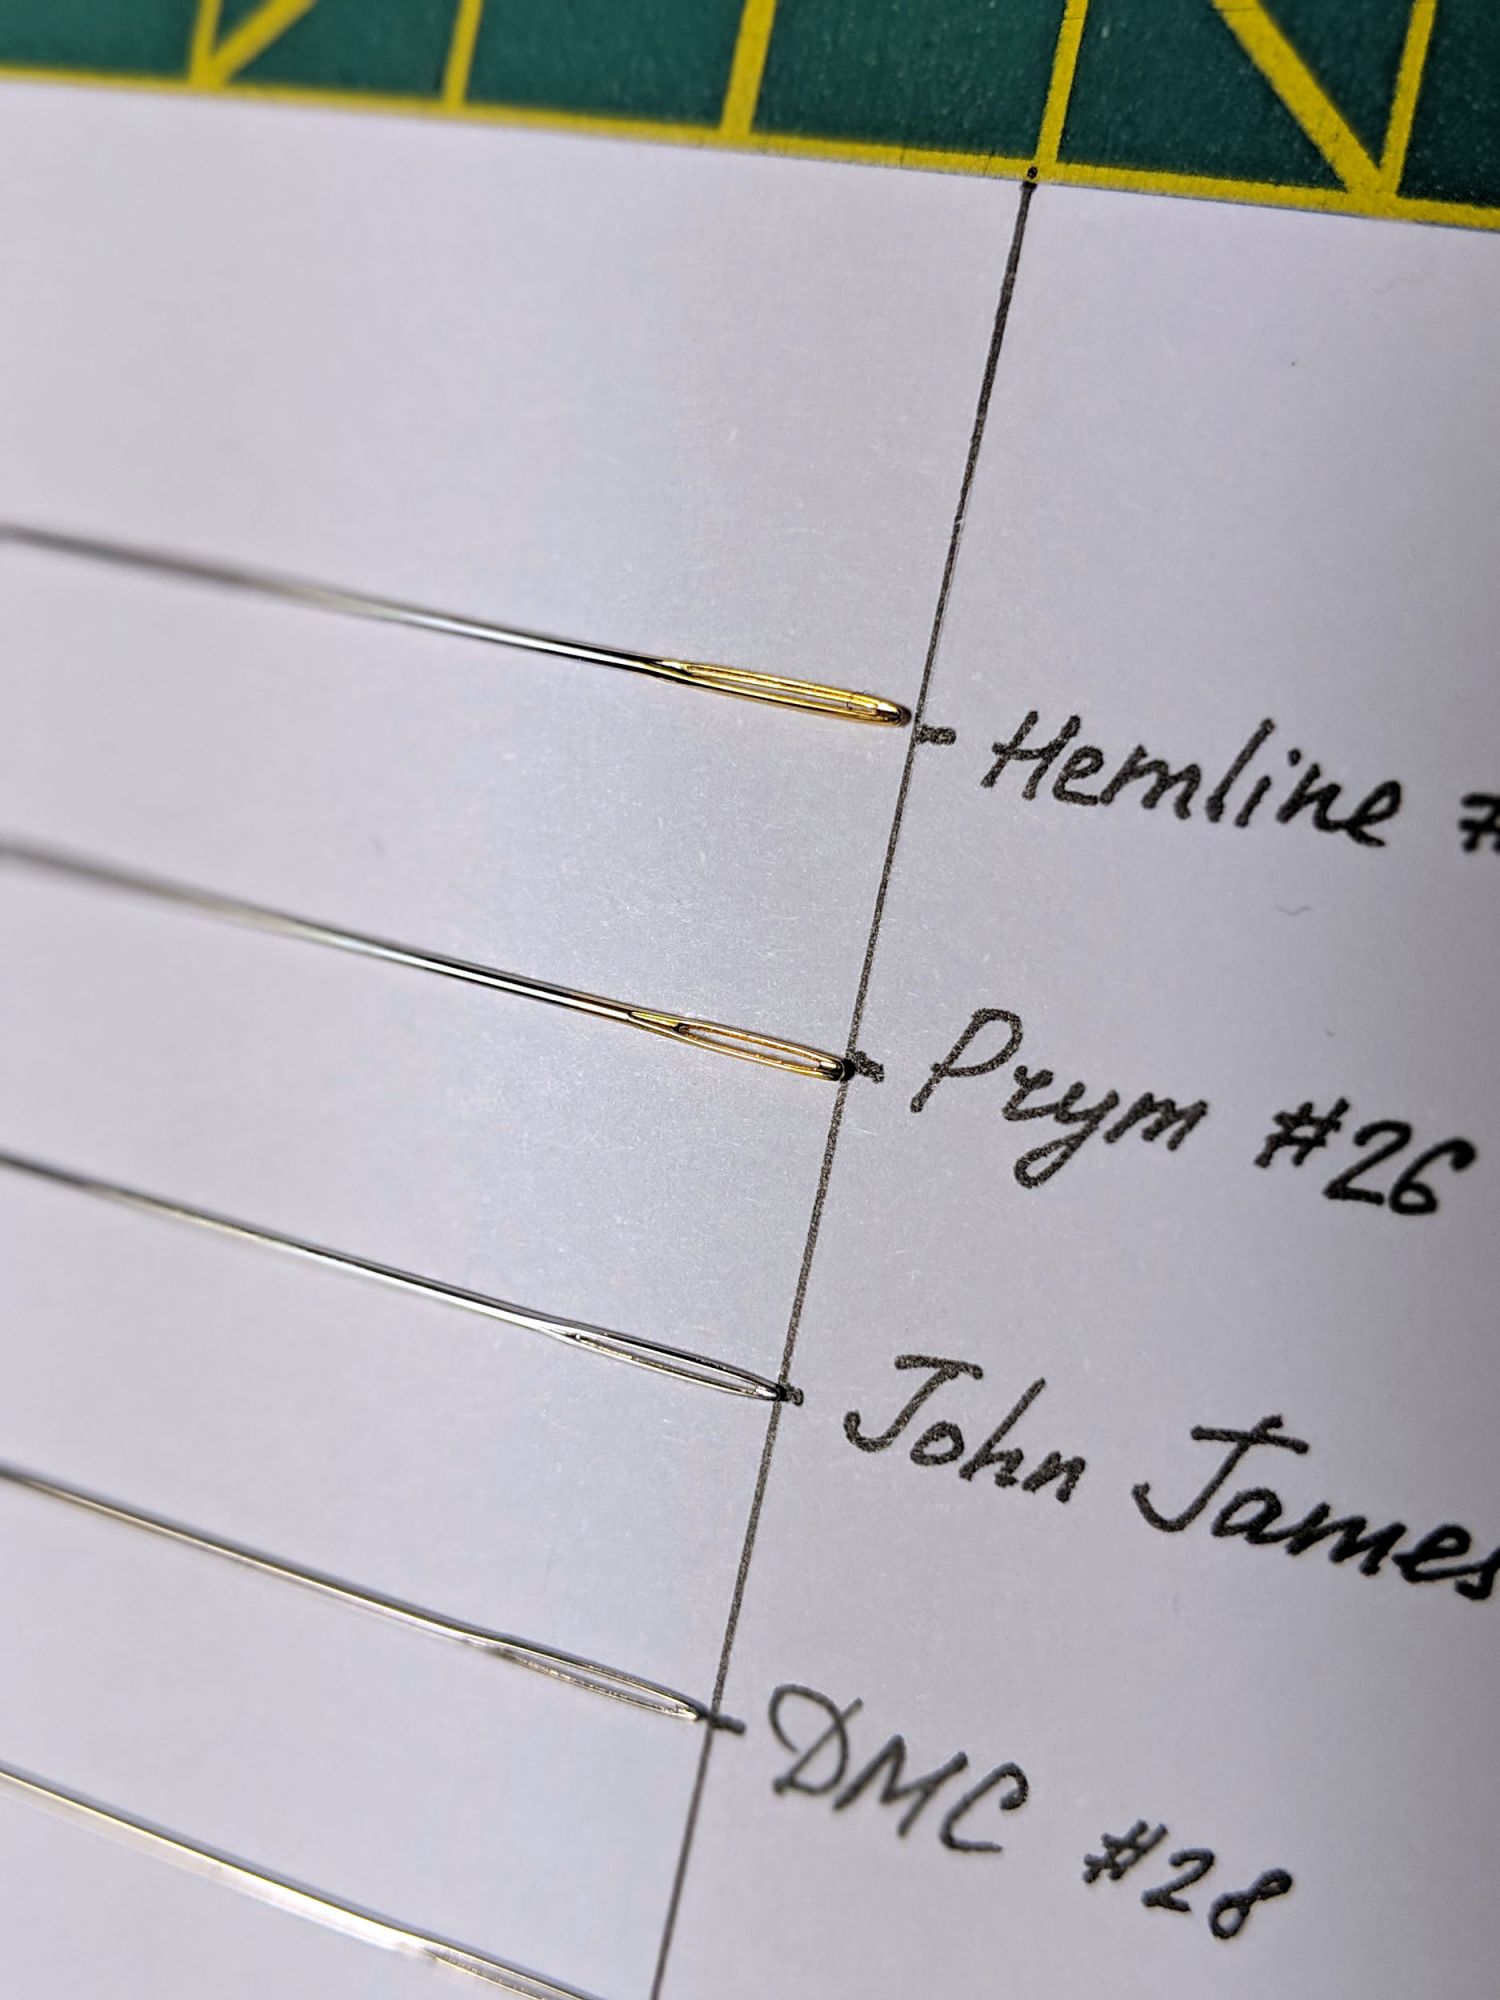 Hemline #
Prym #26
John James
DMC #28